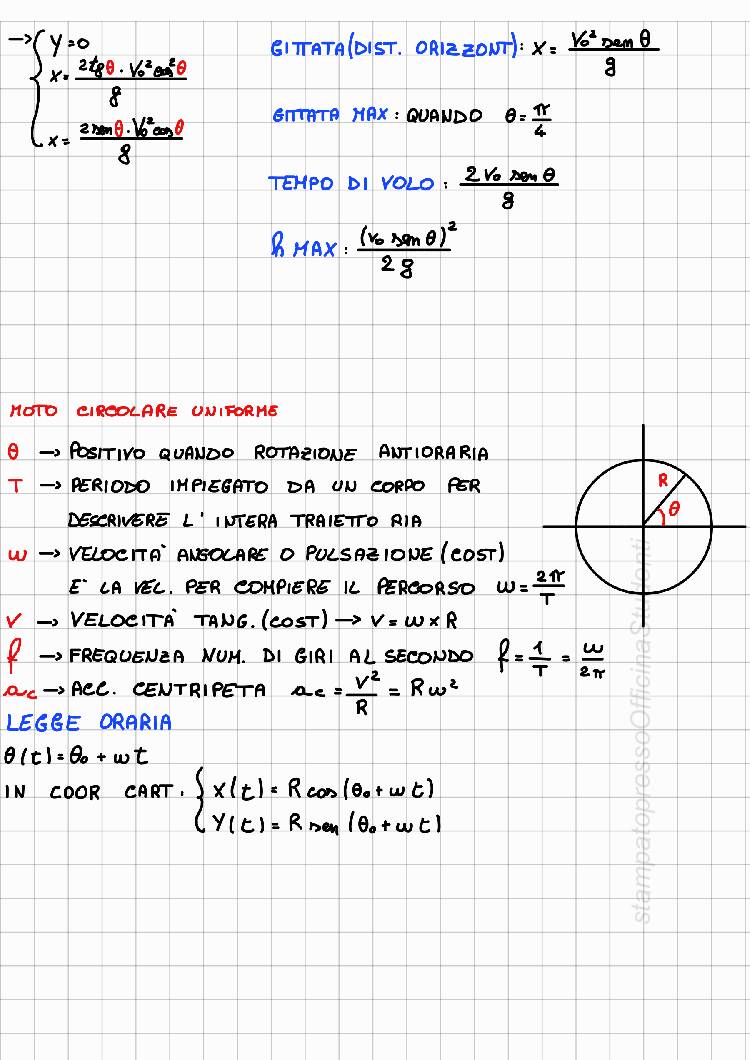 → { Y = 0
x = 2tgθ · V₀² cos²θ / g
x = 2 senθ · V₀² cosθ / g
GITTATA (DIST. ORIZZONT): x = V₀² sen θ / g
GITTATA MAX : QUANDO θ = π/4
TEMPO DI VOLO : 2 V₀ sen θ / g
h MAX : (V₀ sen θ)² / 2 g
MOTO CIRCOLARE UNIFORME
θ → POSITIVO QUANDO ROTAZIONE ANTIORARIA
T → PERIODO IMPIEGATO DA UN CORPO PER
DESCRIVERE L' INTERA TRAIETTO RIA
ω → VELOCITA' ANGOLARE O PULSAZIONE (COST)
E' LA VEL. PER COMPIERE IL PERCORSO ω = 2π/T
V → VELOCITA' TANG. (COST) → V = ω × R
f → FREQUENZA NUM. DI GIRI AL SECONDO f = 1/T = ω/2π
ac → ACC. CENTRIPETA ac = V²/R = R ω²
R
θ
LEGGE ORARIA
θ(t) = θ₀ + ωt
IN COOR CART. { X(t) = R cos (θ₀ + ω t)
Y(t) = R sen (θ₀ + ω t)
stampatopressoOfficinaStudenti